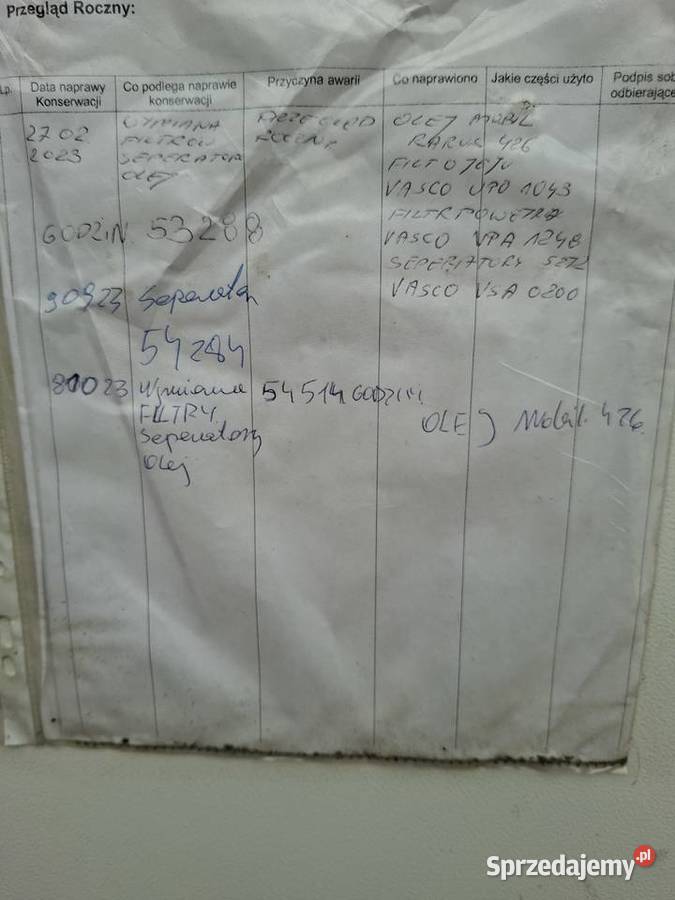 Przegląd Roczny:
Lp. Data naprawy Konserwacji Co podlega naprawie konserwacji Przyczyna awarii Co naprawiono Jakie części użyto Podpis sob odbierające
27 02 2023 WYMIANA FILTRÓW SEPERATOR OLEJ PRZEGLĄD ROCZNY OLEJ MOBIL RARUS 426
FILT OLEJU
VASCO VPO 1043
FILTR POWIETRZA
GODZIN 53288 VASCO VPA 1248
SEPERATORY SZT2
VASCO VSA 0200
30923 Seperator
54284
81023 Wymiana 54514 GODZIN
FILTRY
Seperatory
Olej
OLEJ Mobil 426
Sprzedajemy.pl